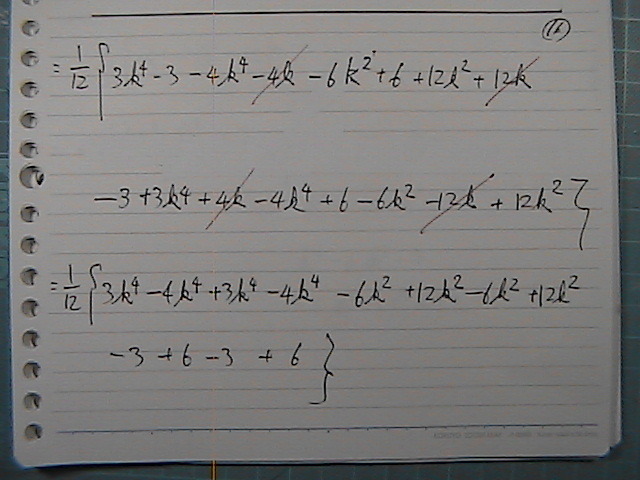 (16)
= 1/12 { 3k⁴ - 3 - 4k⁴ - 4k - 6k² + 6 + 12k² + 12k
- 3 + 3k⁴ + 4k - 4k⁴ + 6 - 6k² - 12k + 12k² }
= 1/12 { 3k⁴ - 4k⁴ + 3k⁴ - 4k⁴ - 6k² + 12k² - 6k² + 12k²
- 3 + 6 - 3 + 6 }